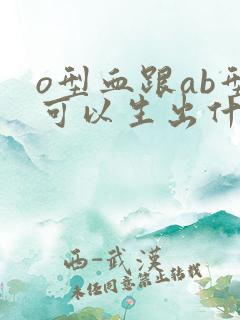 o型血跟ab型
可以生出什
西-武漢
未经同意禁止转载